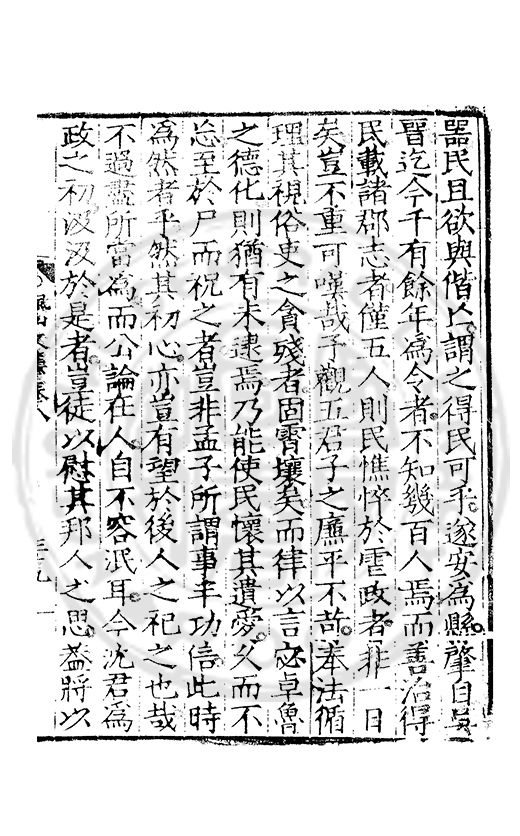 噐民且欲與偕以謂之得民可乎遂安爲縣肇自吳
晋迄今千有餘年爲令者不知幾百人焉而善治得
民載諸郡志者僅五人則民憔悴於雪政者非一日
矣豈不重可嘆哉予觀五君子之廉平不苛奉法循
理其視俗吏之貪殘者固霄壤矣而律以言宓卓魯
之德化則猶有未逮焉乃能使民懷其遺愛久而不
忘至於尸而祝之者豈非孟子所謂事半功倍此時
爲然者乎然其初心亦豈有望於後人之祀之也哉
不過盡所當爲而公論在人自不容泯耳今沈君爲
政之初汲汲於是者豈徒以慰其邦人之思葢將以
文集卷八
三九